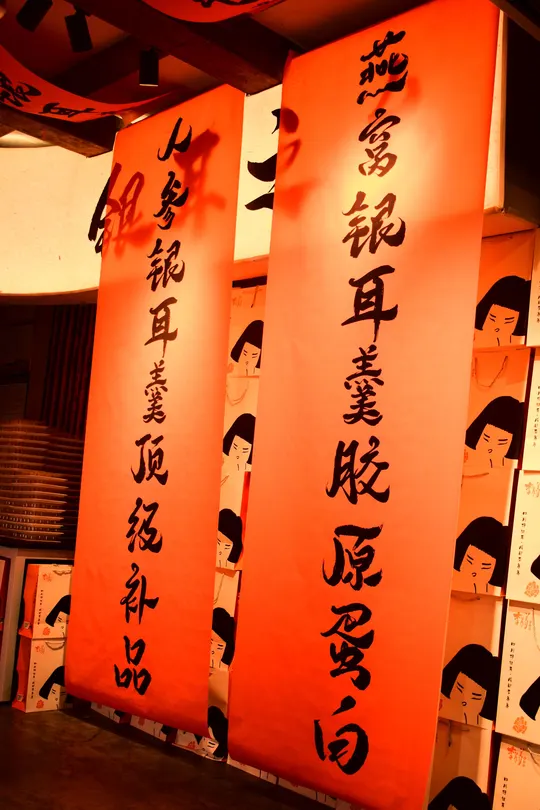 燕窝银耳羹胶原蛋白
人参银耳羹顶级补品
银耳